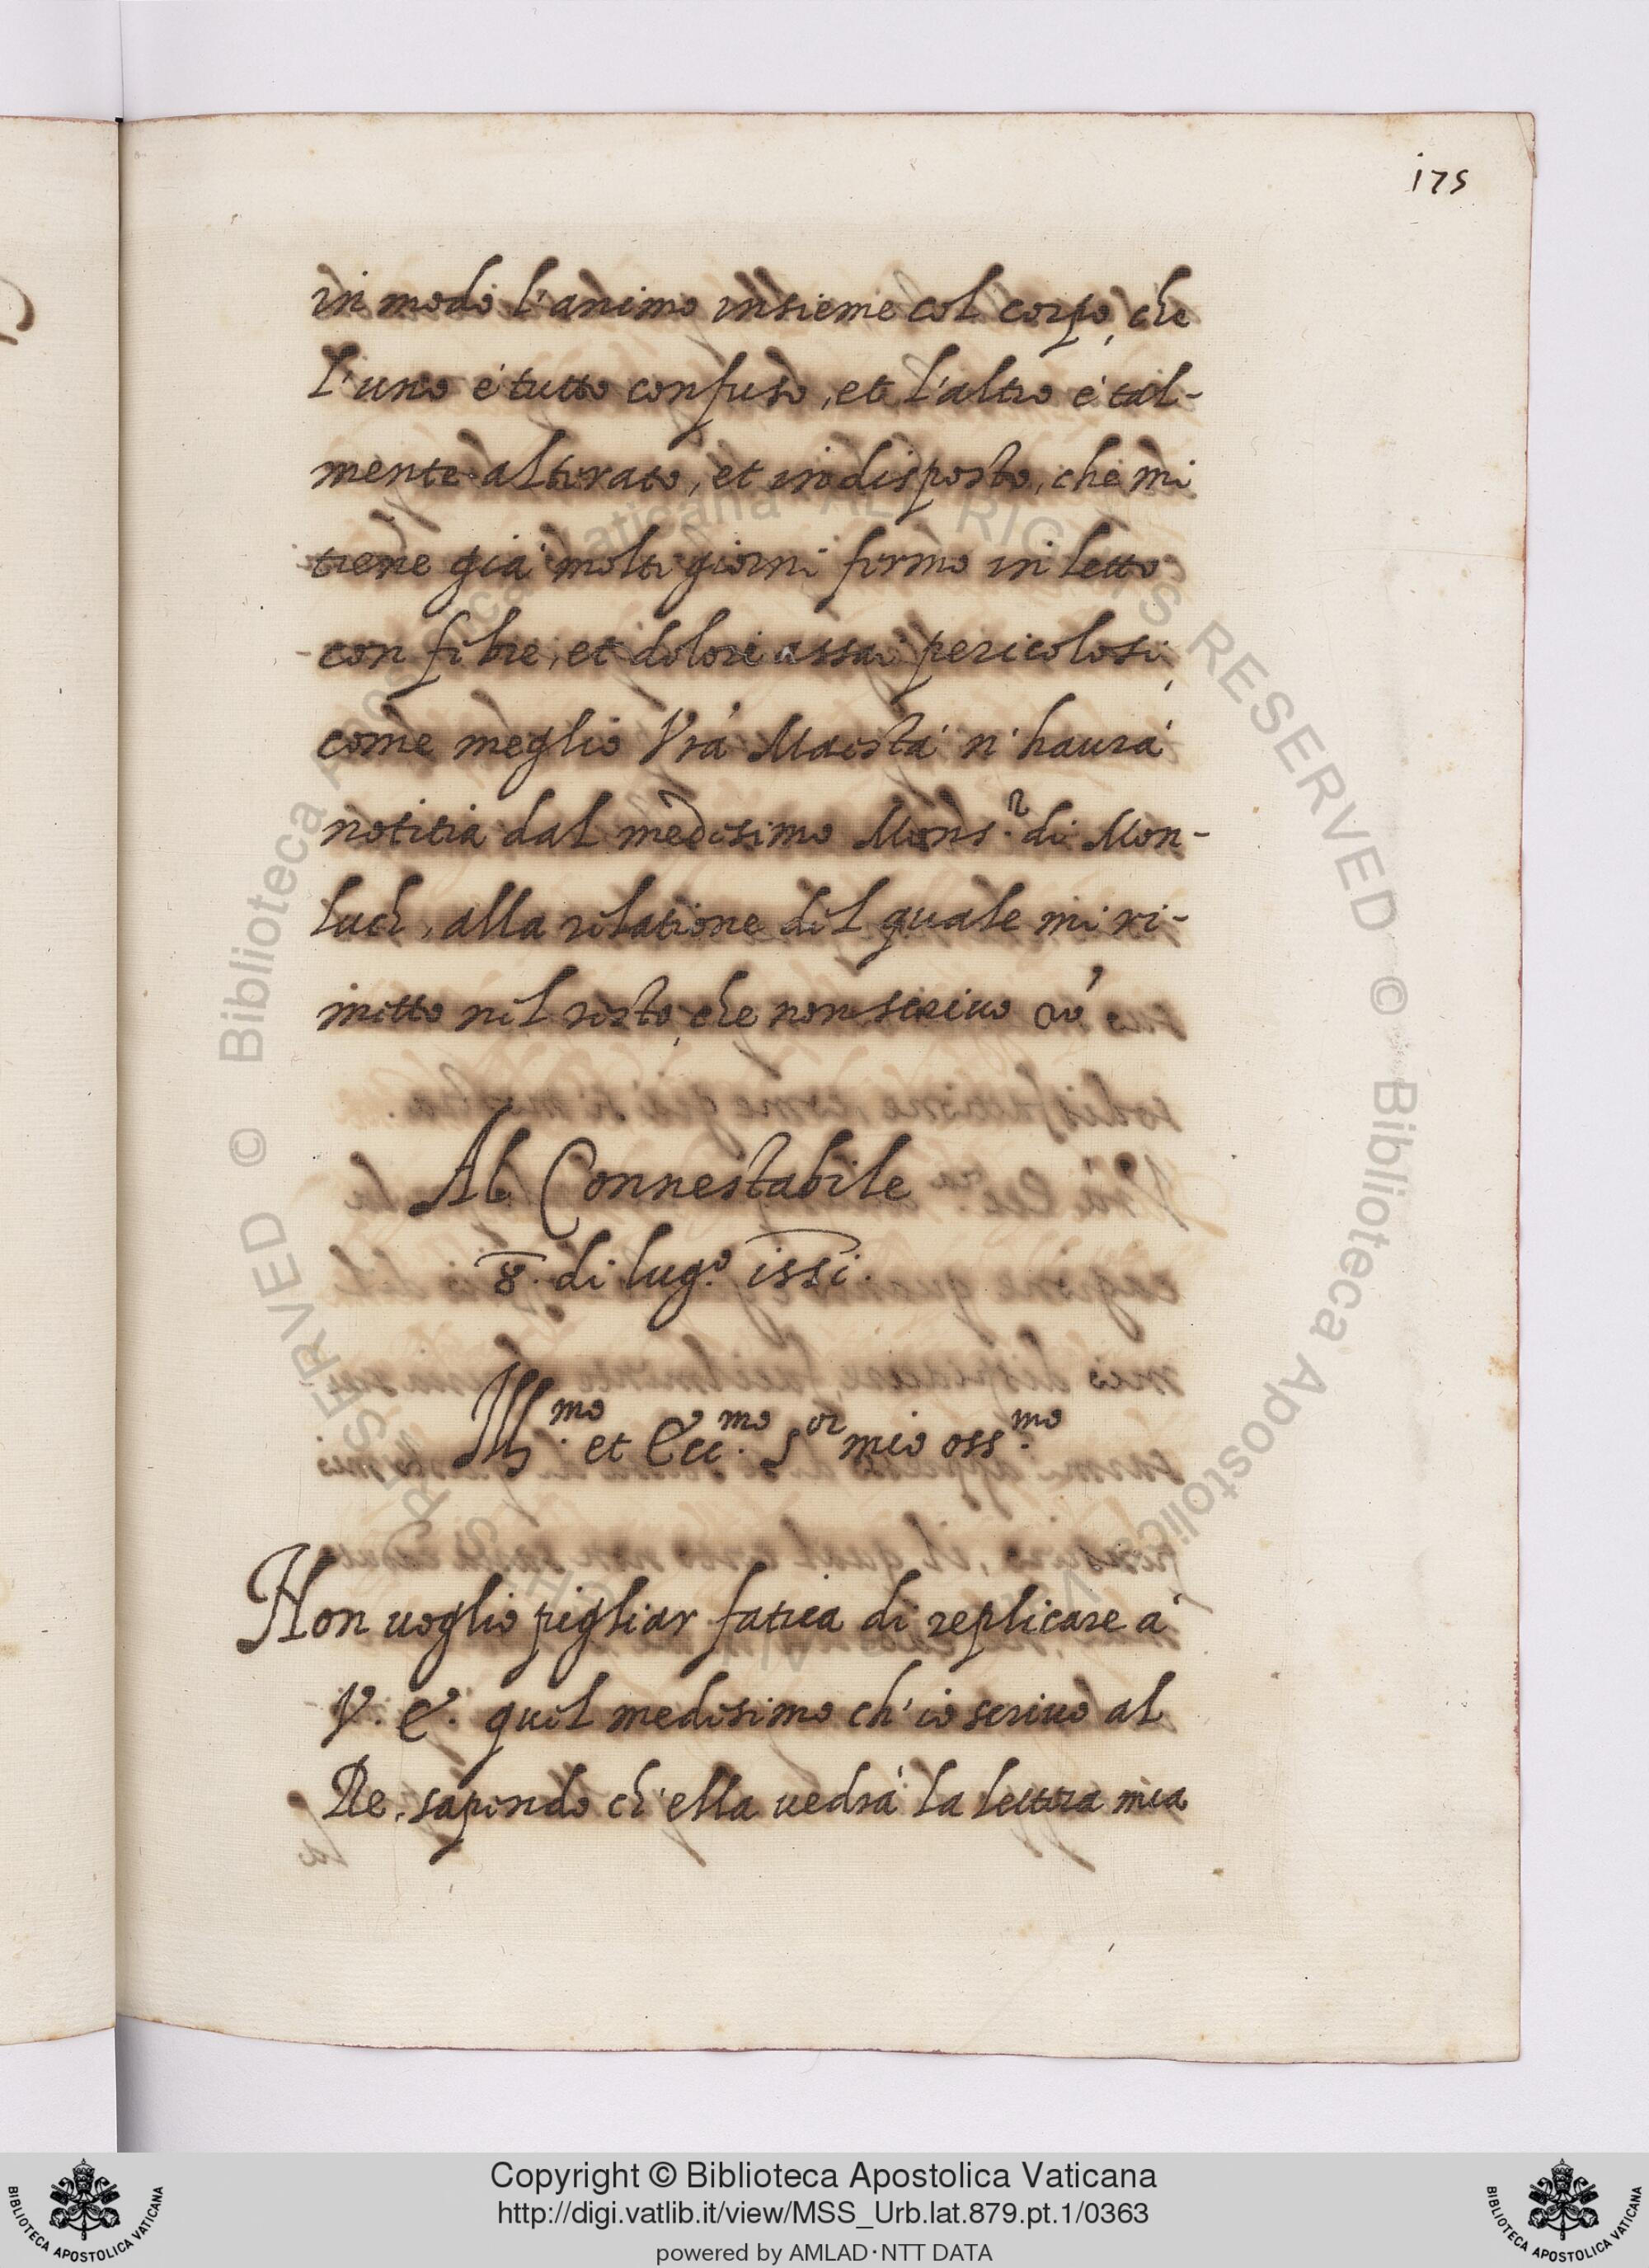 175
in modo l'animo insieme col corpo, che
l'uno è tutto confuso, et l'altro è tal-
mente alterato, et indisposto, che mi
tiene già molti giorni fermo in letto
con febre, et dolori assai pericolosi,
come meglio Vrã Maestà n'haurà
notitia dal medesimo Mons.r di Mon-
luch, alla relatione del quale mi ri-
metto nel resto, che non scriuo
Al Connestabile
8. di lug.o 1551.
Ill.mo et Ecc.mo S.or mio oss.mo
Non uoglio pigliar fatica di replicare à
V. E. quel medesimo ch'io scriuo al
Re, sapendo ch'ella uedrà la lettera mia
Copyright © Biblioteca Apostolica Vaticana
http://digi.vatlib.it/view/MSS_Urb.lat.879.pt.1/0363
powered by AMLAD·NTT DATA
BIBLIOTECA APOSTOLICA VATICANA
BIBLIOTECA APOSTOLICA VATICANA